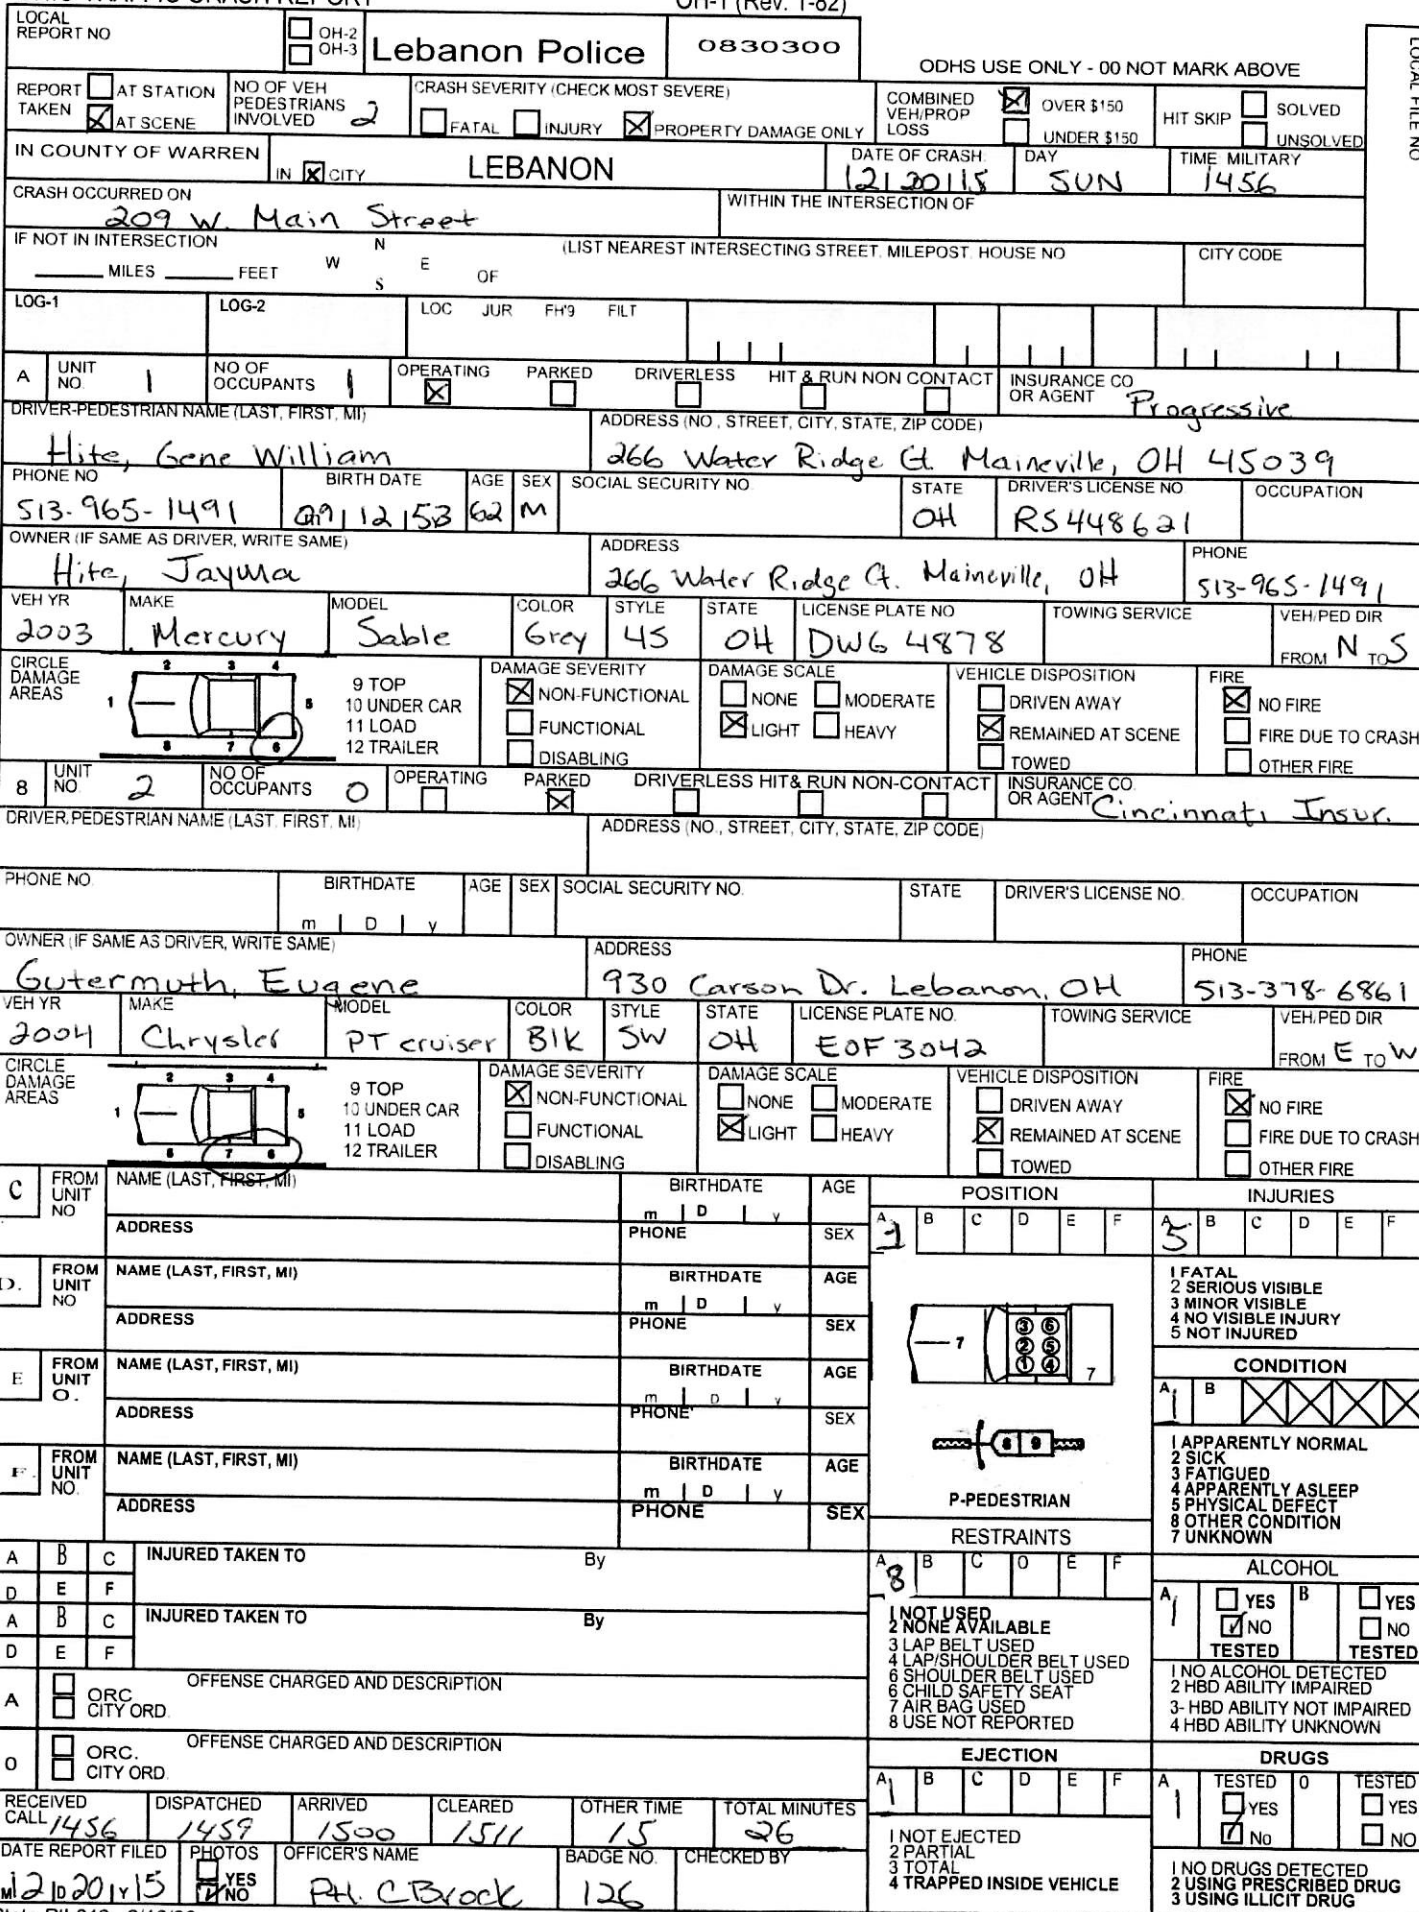 OH-1 (Rev. 1-82)
LOCAL REPORT NO
OH-2
OH-3
Lebanon Police
0830300
ODHS USE ONLY - 00 NOT MARK ABOVE
LOCAL FILE NO
REPORT TAKEN
AT STATION
AT SCENE
NO OF VEH PEDESTRIANS INVOLVED 2
CRASH SEVERITY (CHECK MOST SEVERE)
FATAL INJURY PROPERTY DAMAGE ONLY
COMBINED VEH/PROP LOSS
OVER $150
UNDER $150
HIT SKIP
SOLVED
UNSOLVED
IN COUNTY OF WARREN
IN X CITY
LEBANON
DATE OF CRASH 12|20|15
DAY SUN
TIME MILITARY 1456
CRASH OCCURRED ON 209 W. Main Street
WITHIN THE INTERSECTION OF
IF NOT IN INTERSECTION
MILES FEET
N W E S OF
(LIST NEAREST INTERSECTING STREET, MILEPOST, HOUSE NO
CITY CODE
LOG-1 LOG-2 LOC JUR FH'9 FILT
A UNIT NO. 1
NO OF OCCUPANTS 1
OPERATING PARKED DRIVERLESS HIT & RUN NON CONTACT
INSURANCE CO OR AGENT Progressive
DRIVER-PEDESTRIAN NAME (LAST, FIRST, MI)
Hite, Gene William
ADDRESS (NO., STREET, CITY, STATE, ZIP CODE)
266 Water Ridge Ct. Maineville, OH 45039
PHONE NO 513-965-1491
BIRTH DATE 09|12|53
AGE 62
SEX M
SOCIAL SECURITY NO.
STATE OH
DRIVER'S LICENSE NO RS448621
OCCUPATION
OWNER (IF SAME AS DRIVER, WRITE SAME)
Hite, Jayma
ADDRESS
266 Water Ridge Ct. Maineville, OH
PHONE 513-965-1491
VEH YR 2003
MAKE Mercury
MODEL Sable
COLOR Grey
STYLE 4S
STATE OH
LICENSE PLATE NO DWG 4878
TOWING SERVICE
VEH/PED DIR FROM N TO S
CIRCLE DAMAGE AREAS
2 3 4
1 5
8 7 6
9 TOP
10 UNDER CAR
11 LOAD
12 TRAILER
DAMAGE SEVERITY
NON-FUNCTIONAL
FUNCTIONAL
DISABLING
DAMAGE SCALE
NONE MODERATE
LIGHT HEAVY
VEHICLE DISPOSITION
DRIVEN AWAY
REMAINED AT SCENE
TOWED
FIRE
NO FIRE
FIRE DUE TO CRASH
OTHER FIRE
8 UNIT NO. 2
NO OF OCCUPANTS 0
OPERATING PARKED DRIVERLESS HIT& RUN NON-CONTACT
INSURANCE CO. OR AGENT Cincinnati Insur.
DRIVER, PEDESTRIAN NAME (LAST. FIRST, MI)
ADDRESS (NO., STREET, CITY, STATE, ZIP CODE)
PHONE NO.
BIRTHDATE m D y
AGE SEX SOCIAL SECURITY NO. STATE DRIVER'S LICENSE NO. OCCUPATION
OWNER (IF SAME AS DRIVER, WRITE SAME)
Gutermuth, Eugene
ADDRESS
930 Carson Dr. Lebanon, OH
PHONE 513-378-6861
VEH YR 2004
MAKE Chrysler
MODEL PT cruiser
COLOR Blk
STYLE SW
STATE OH
LICENSE PLATE NO. EOF 3042
TOWING SERVICE
VEH/PED DIR FROM E TO W
CIRCLE DAMAGE AREAS
2 3 4
1 5
8 7 6
9 TOP
10 UNDER CAR
11 LOAD
12 TRAILER
DAMAGE SEVERITY
NON-FUNCTIONAL
FUNCTIONAL
DISABLING
DAMAGE SCALE
NONE MODERATE
LIGHT HEAVY
VEHICLE DISPOSITION
DRIVEN AWAY
REMAINED AT SCENE
TOWED
FIRE
NO FIRE
FIRE DUE TO CRASH
OTHER FIRE
C FROM UNIT NO
NAME (LAST, FIRST, MI)
BIRTHDATE m D y
AGE
ADDRESS PHONE SEX
D. FROM UNIT NO
NAME (LAST, FIRST, MI)
BIRTHDATE m D y
AGE
ADDRESS PHONE SEX
E FROM UNIT O.
NAME (LAST, FIRST, MI)
BIRTHDATE m D y
AGE
ADDRESS PHONE SEX
F. FROM UNIT NO.
NAME (LAST, FIRST, MI)
BIRTHDATE m D y
AGE
ADDRESS PHONE SEX
POSITION
A B C D E F
7 3 6 2 5 1 4 7
8 9
P-PEDESTRIAN
INJURIES
A 5 B C D E F
1 FATAL
2 SERIOUS VISIBLE
3 MINOR VISIBLE
4 NO VISIBLE INJURY
5 NOT INJURED
CONDITION
A 1 B
1 APPARENTLY NORMAL
2 SICK
3 FATIGUED
4 APPARENTLY ASLEEP
5 PHYSICAL DEFECT
8 OTHER CONDITION
7 UNKNOWN
A B C INJURED TAKEN TO By
D E F
A B C INJURED TAKEN TO By
D E F
RESTRAINTS
A 8 B C O E F
1 NOT USED
2 NONE AVAILABLE
3 LAP BELT USED
4 LAP/SHOULDER BELT USED
6 SHOULDER BELT USED
6 CHILD SAFETY SEAT
7 AIR BAG USED
8 USE NOT REPORTED
ALCOHOL
A 1 YES NO TESTED
B YES NO TESTED
1 NO ALCOHOL DETECTED
2 HBD ABILITY IMPAIRED
3- HBD ABILITY NOT IMPAIRED
4 HBD ABILITY UNKNOWN
A ORC CITY ORD. OFFENSE CHARGED AND DESCRIPTION
O ORC. CITY ORD. OFFENSE CHARGED AND DESCRIPTION
EJECTION
A 1 B C D E F
1 NOT EJECTED
2 PARTIAL
3 TOTAL
4 TRAPPED INSIDE VEHICLE
DRUGS
A 1 TESTED YES No
0 TESTED YES NO
1 NO DRUGS DETECTED
2 USING PRESCRIBED DRUG
3 USING ILLICIT DRUG
RECEIVED CALL 1456
DISPATCHED 1459
ARRIVED 1500
CLEARED 1511
OTHER TIME 15
TOTAL MINUTES 26
DATE REPORT FILED M 12 D 20 Y 15
PHOTOS YES NO
OFFICER'S NAME Ptl. C Brock
BADGE NO. 126
CHECKED BY